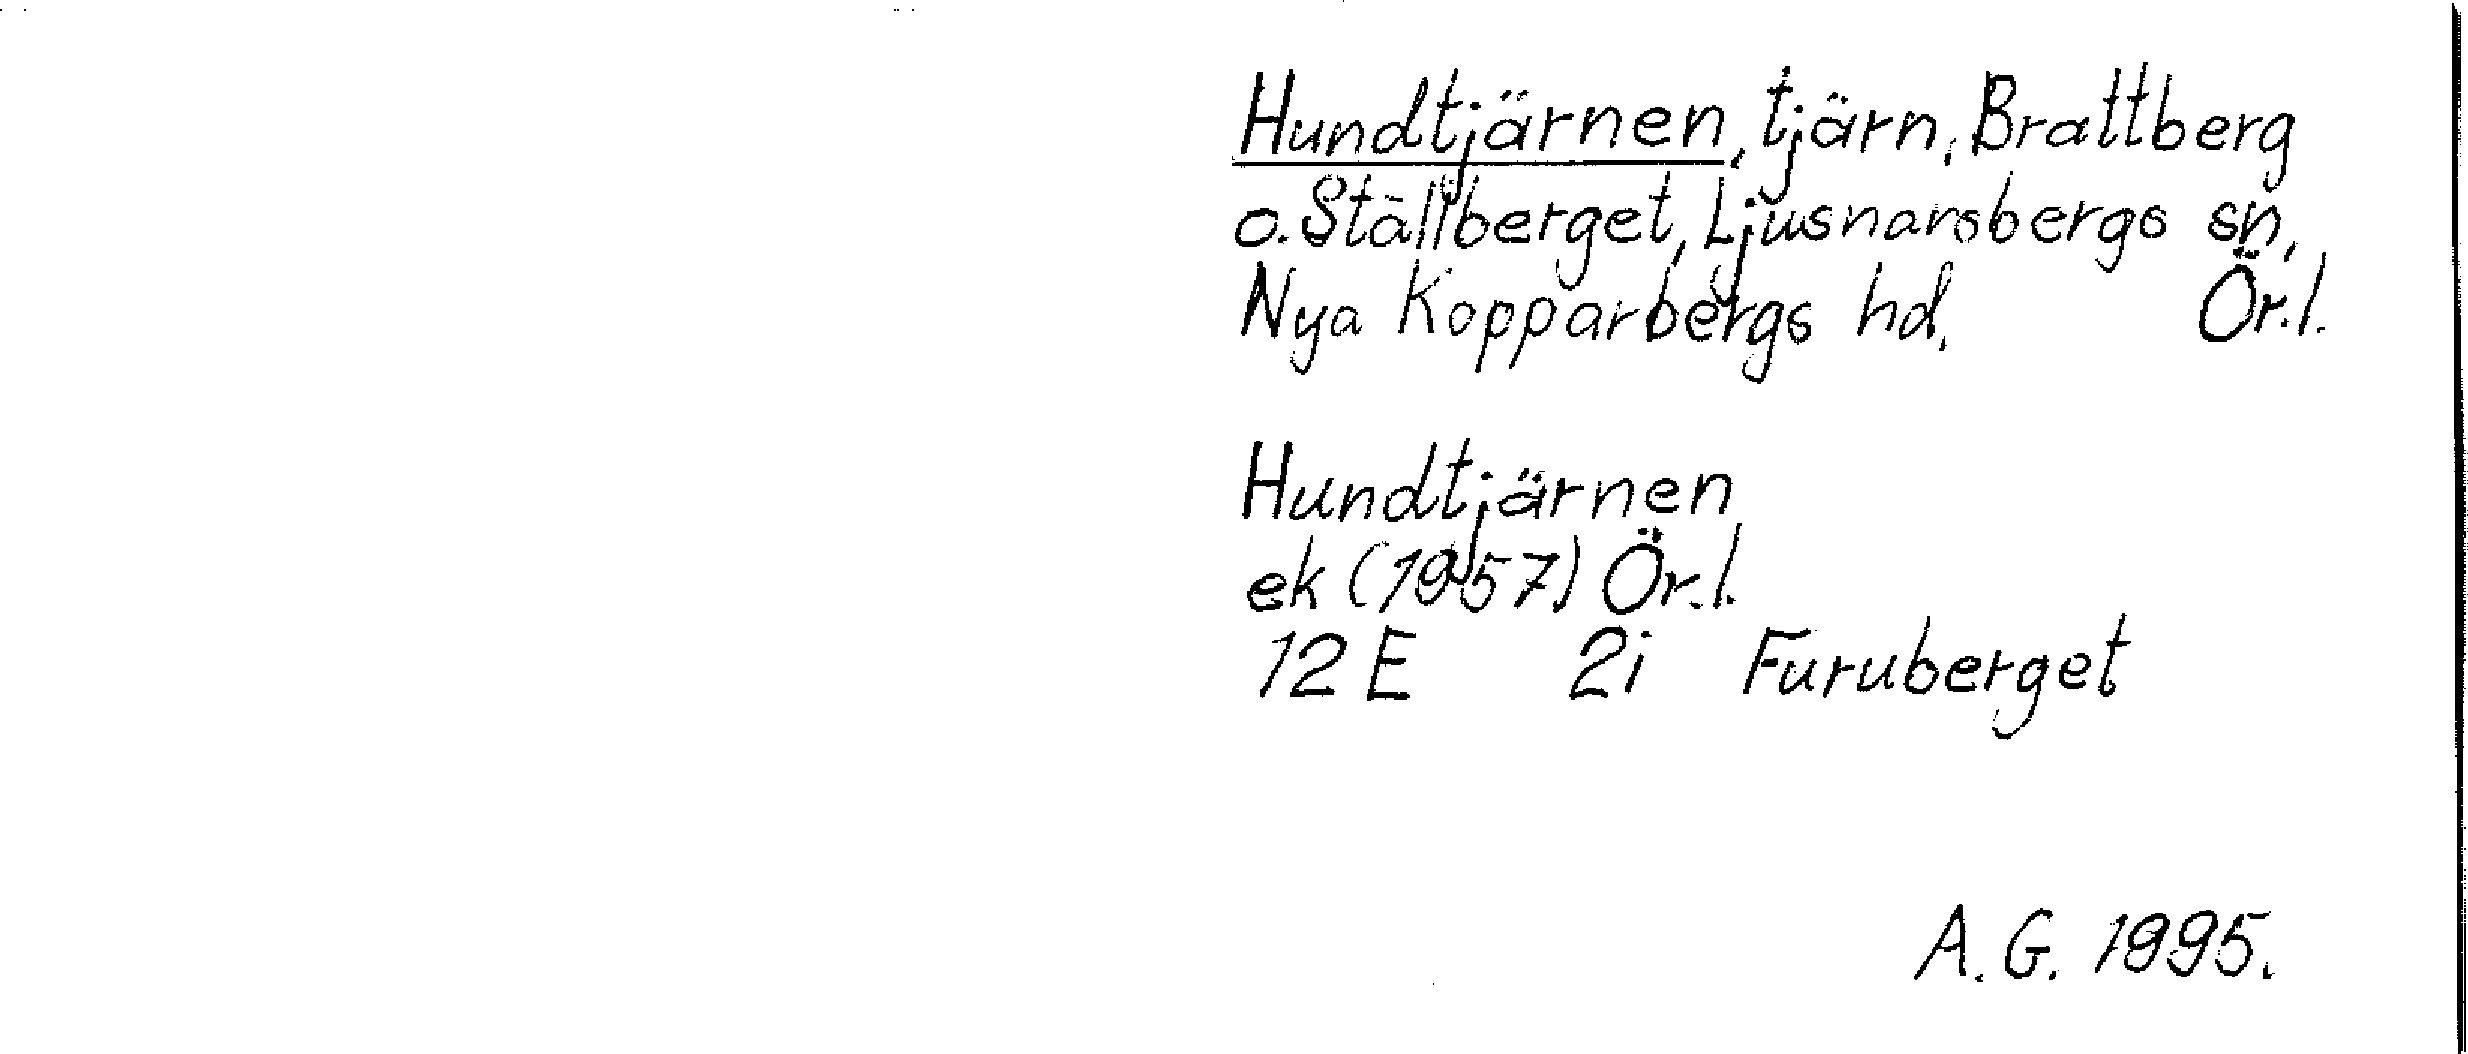 Hundtjärnen, tjärn, Brattberg
o. Ställberget, Ljusnarsbergs sn,
Nya Kopparbergs hd. Ör.l.
Hundtjärnen
ek (1957) Ör.l.
12 E 2i Furuberget
A.G. 1995.